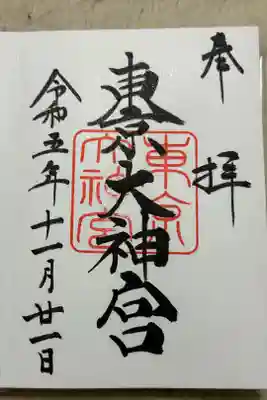 奉拝
東京大神宮
東京大神宮
令和五年十一月廿一日